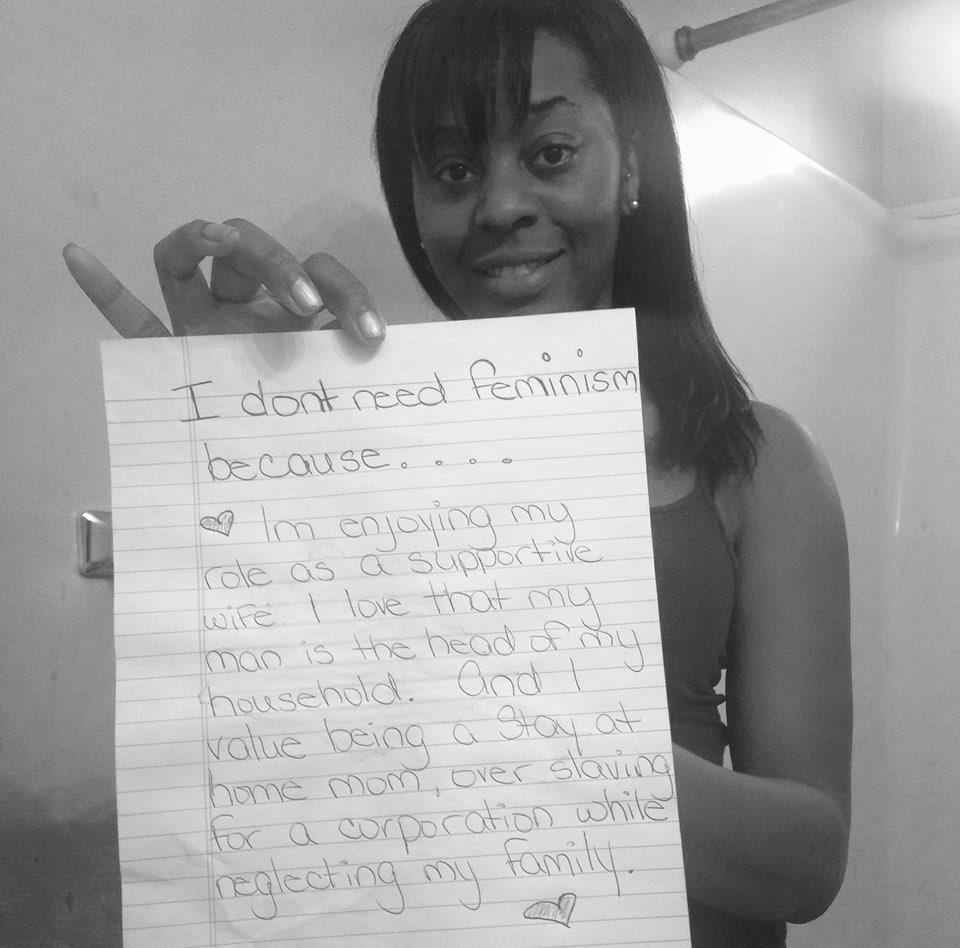 I dont need feminism
because.....
Im enjoying my
role as a supportive
wife. I love that my
man is the head of my
household. And I
value being a stay at
home mom, over slaving
for a corporation while
neglecting my family.